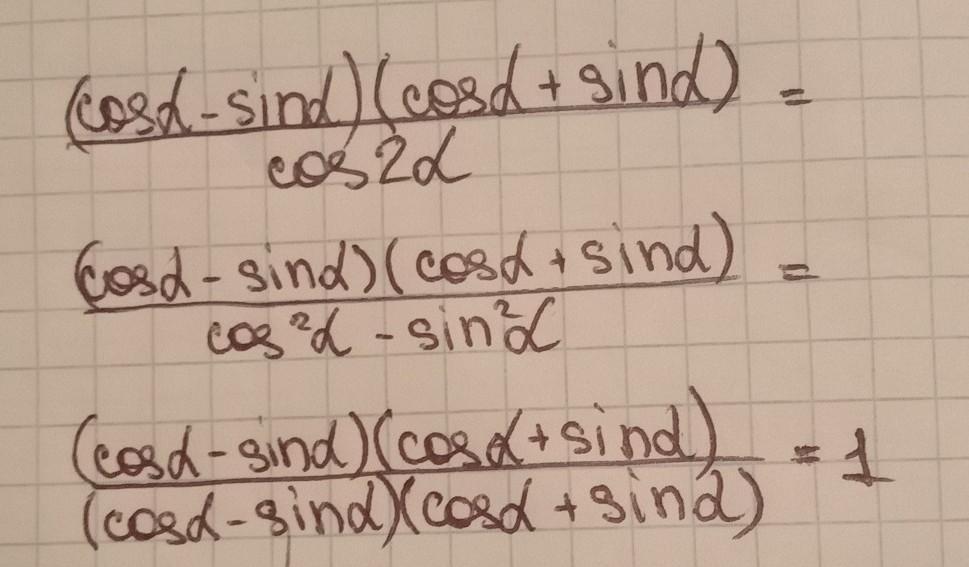 (cosα - sinα)(cosα + sinα) =
cos2α
(cosα - sinα)(cosα + sinα) =
cos²α - sin²α
(cosα - sinα)(cosα + sinα) = 1
(cosα - sinα)(cosα + sinα)